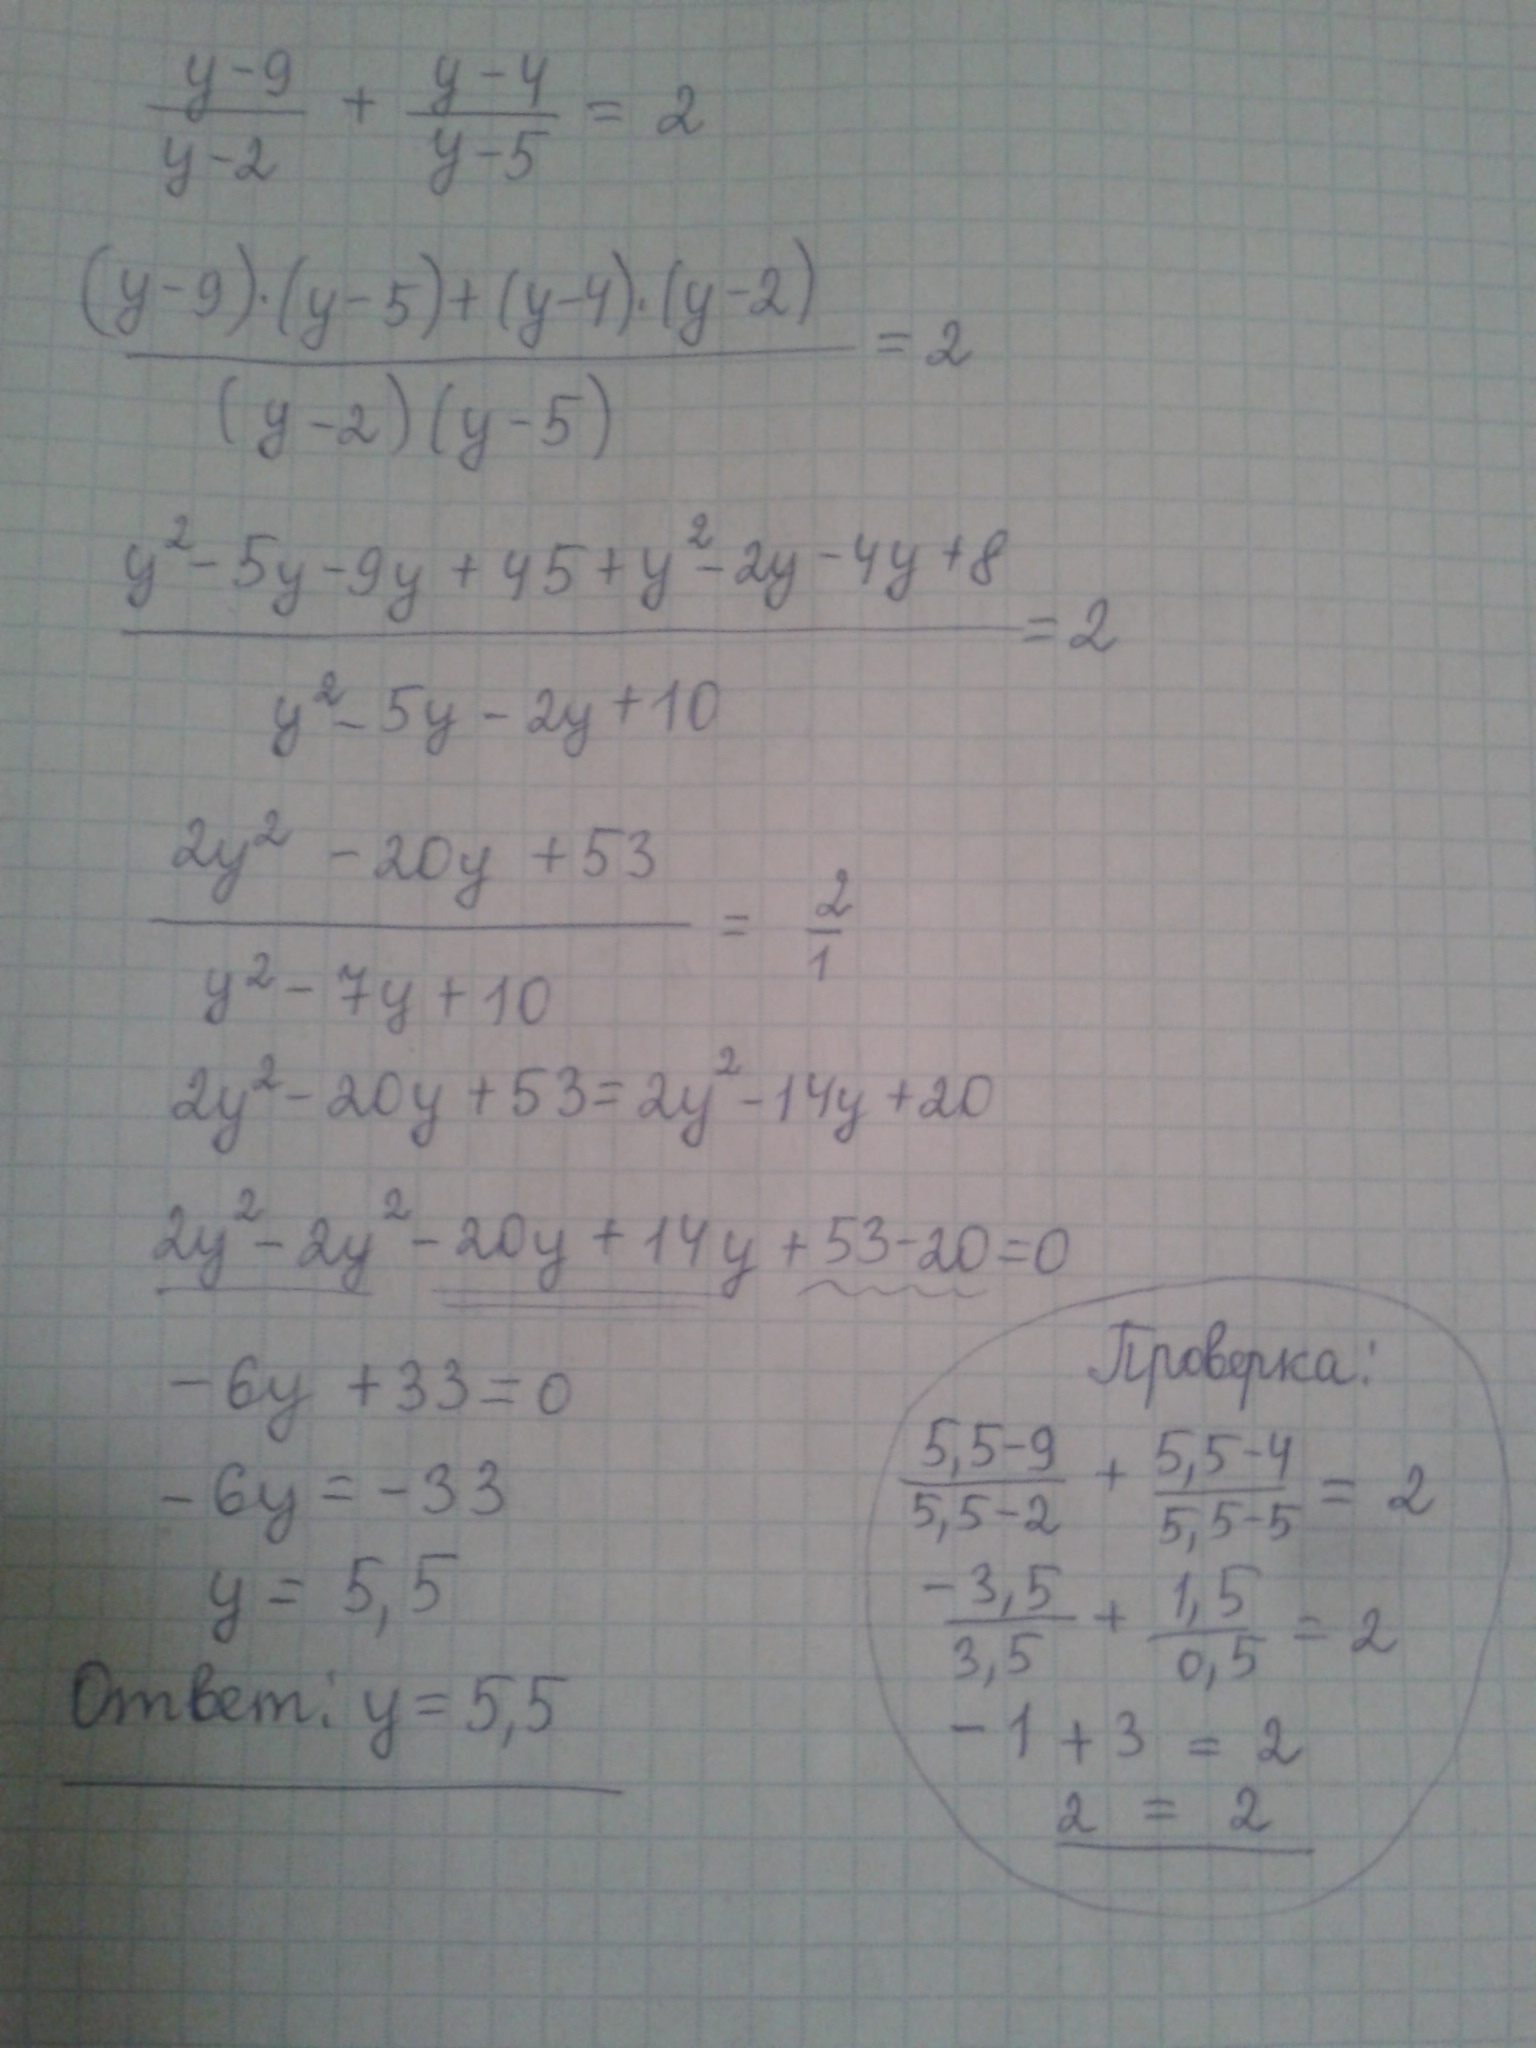 (y-9)/(y-2) + (y-4)/(y-5) = 2
((y-9)·(y-5)+(y-4)·(y-2))/((y-2)(y-5)) = 2
(y²-5y-9y+45+y²-2y-4y+8)/(y²-5y-2y+10) = 2
(2y²-20y+53)/(y²-7y+10) = 2/1
2y²-20y+53=2y²-14y+20
2y²-2y²-20y+14y+53-20=0
-6y+33=0
-6y=-33
y=5,5
Ответ: y=5,5
Проверка:
(5,5-9)/(5,5-2) + (5,5-4)/(5,5-5) = 2
-3,5/3,5 + 1,5/0,5 = 2
-1+3=2
2=2